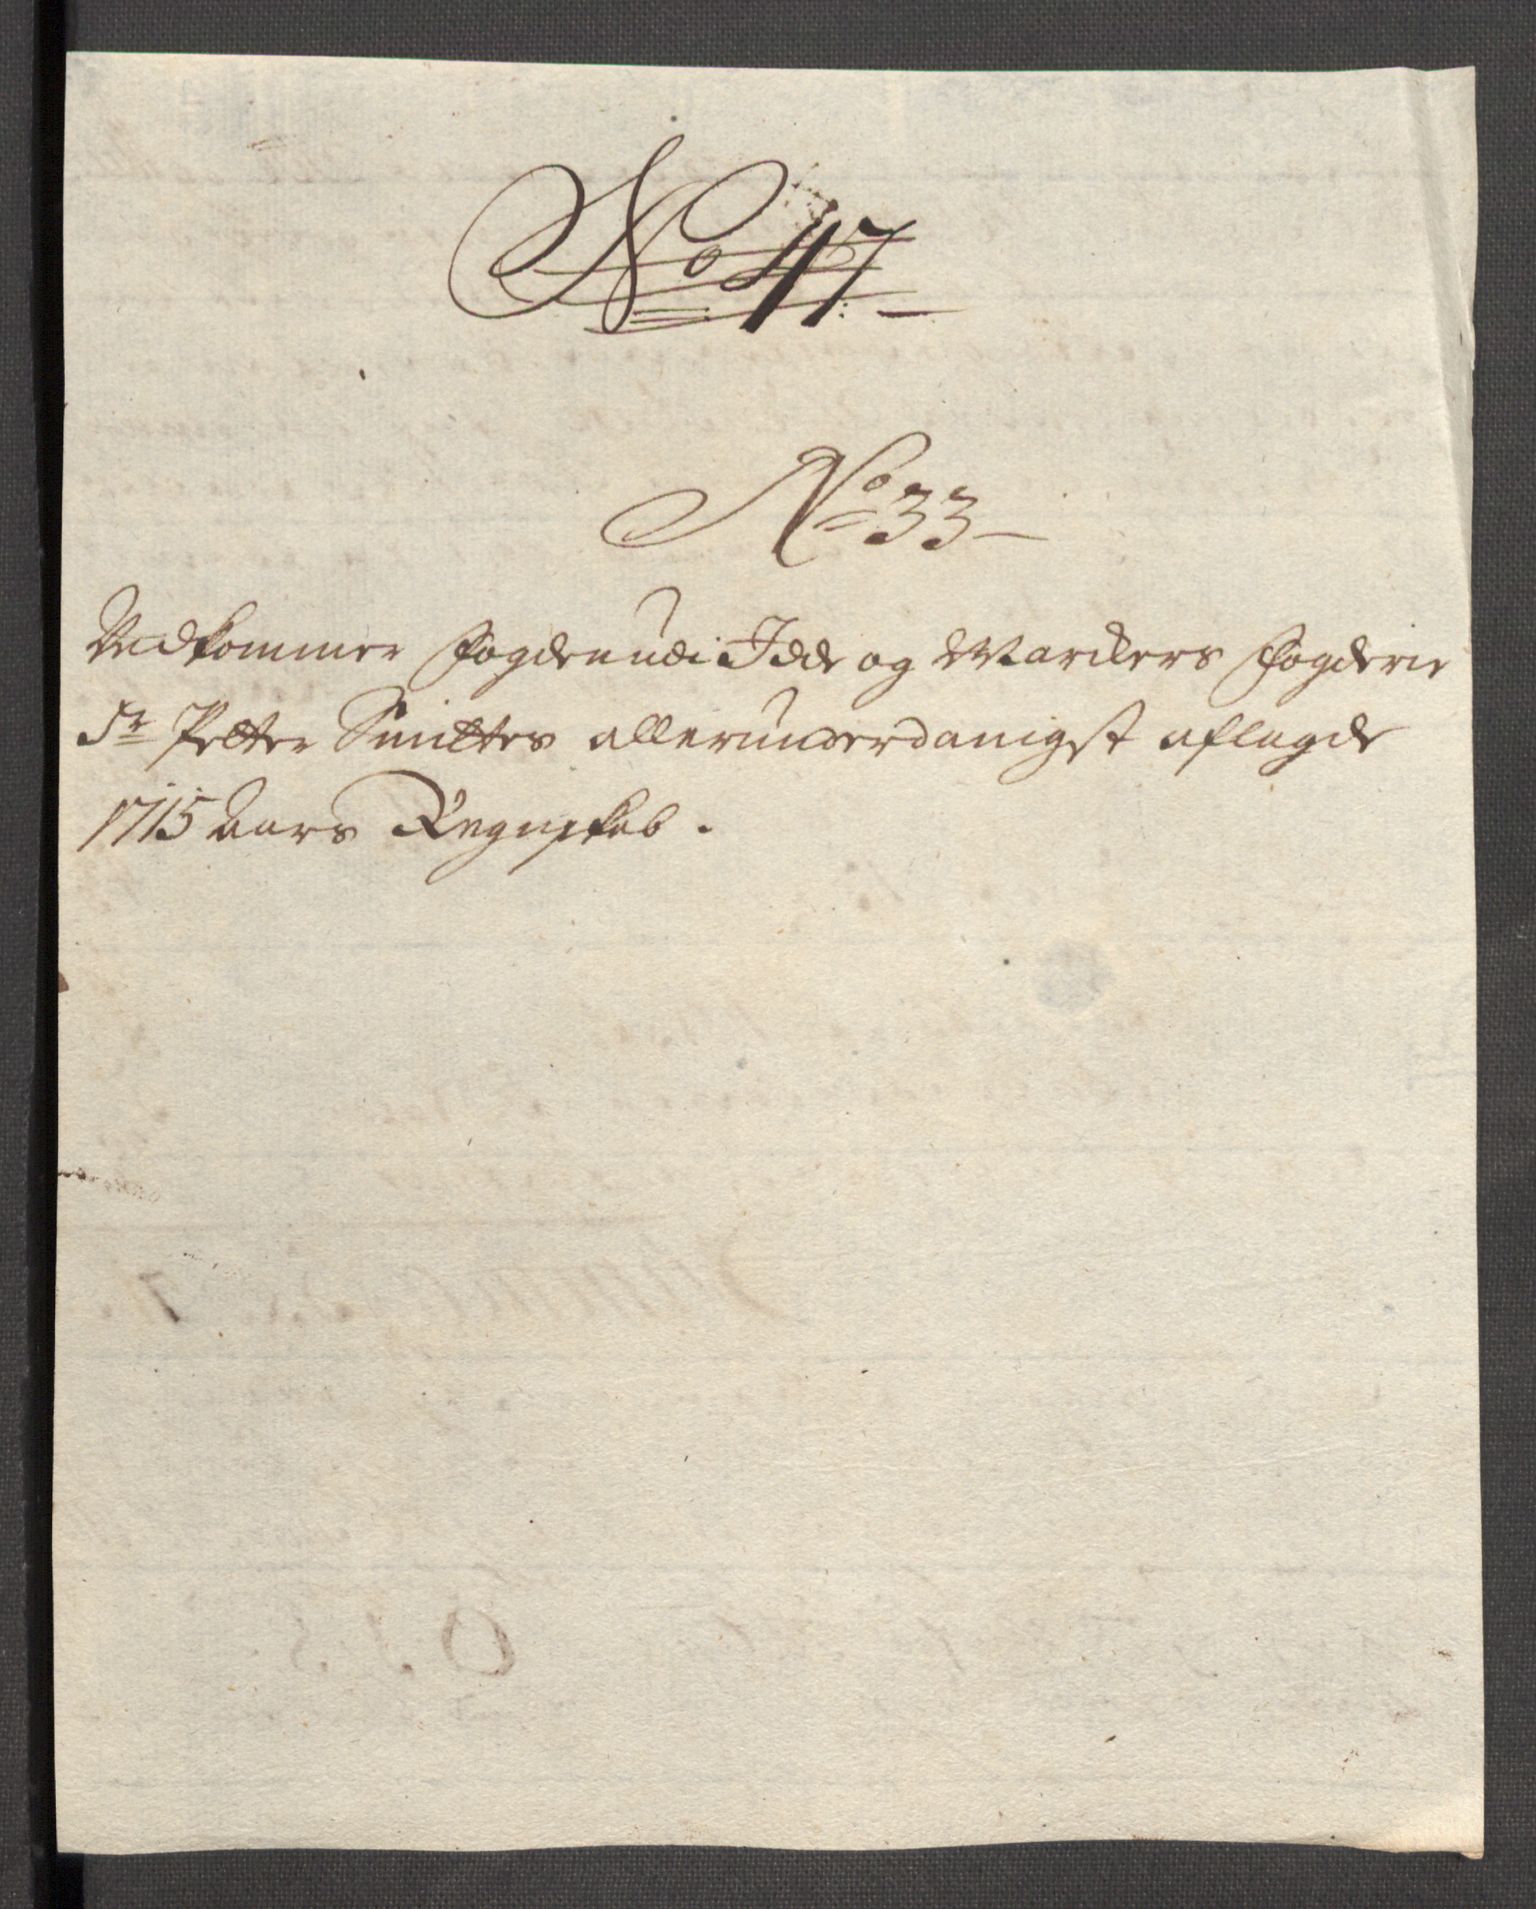 No 47
No 33
Vedkommer Fogden udi Idde og Markers Fogderie
Sr Petter Smittes allerunderdanigst aflagde
1715 Aars Regnskab.